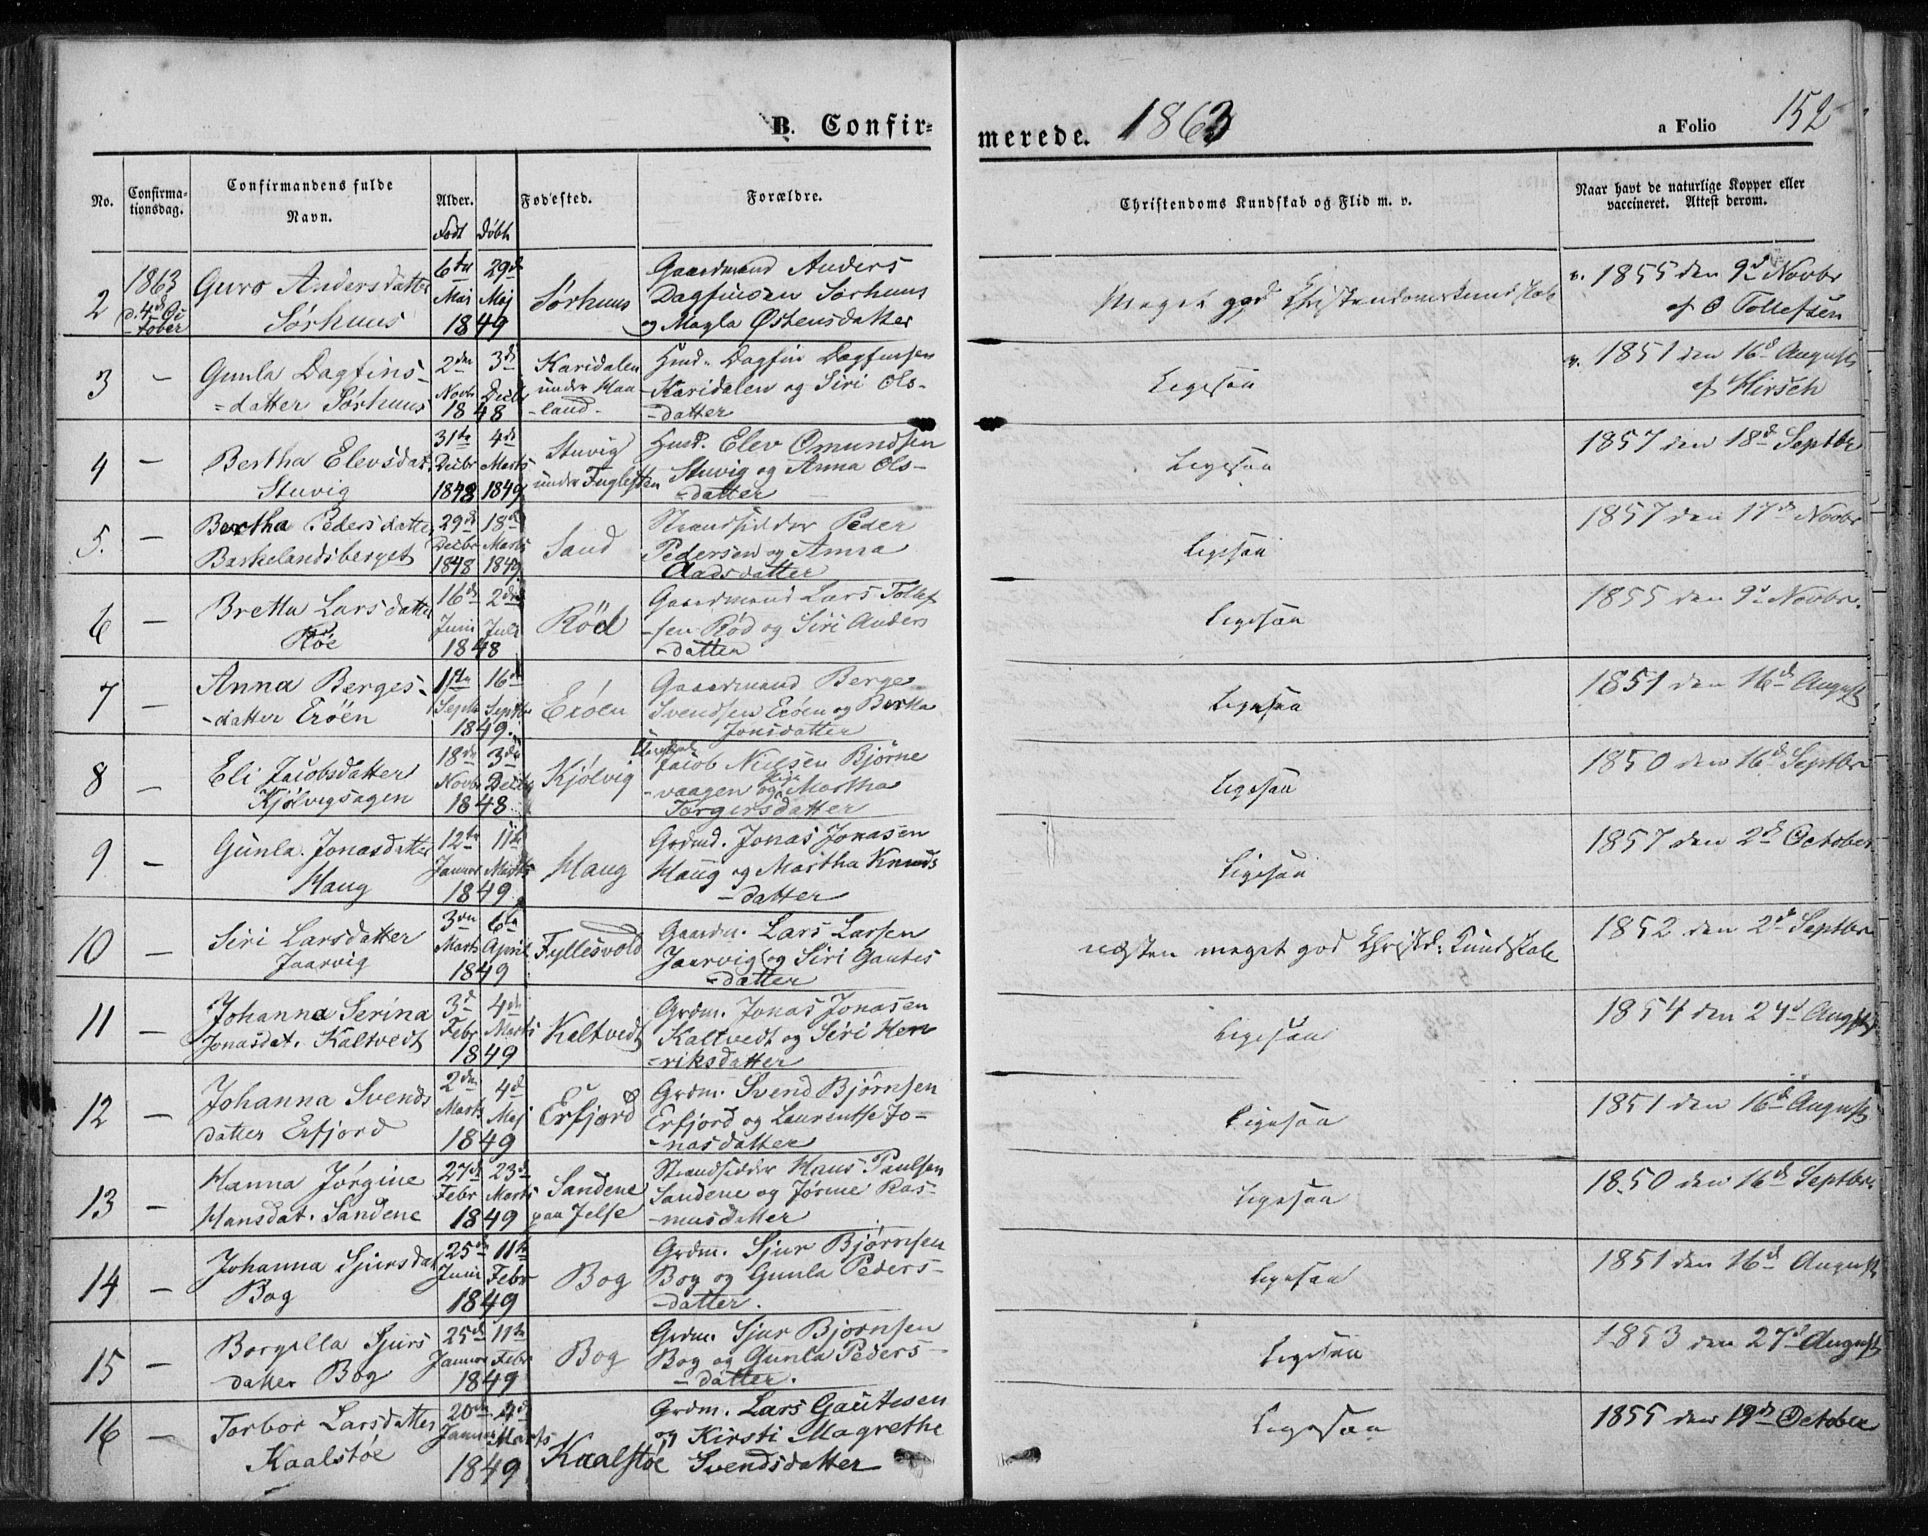 B. Confirmerede. 1863 a Folio 152
No. Confirmationsdag. Confirmandens fulde Navn. Alder. Født Døbt Fødested. Forældre. Christendoms Kundskab og Flid m. v. Naar havt de naturlige Kopper eller vaccineret. Attest derom.
2 1863 d. 4d October Guro Andersdatter Sørhuus 6te Maj 29d Maj 1849 Sørhuus Gaardmand Anders Dagfinsen Sørhuus og Magla Østensdatter Meget god Christendomskundskab v. 1855 den 9d Novbr af O Tollefsen
3 — Gunla Dagfins-datter Sørhuus 2den Novbr 3d Decbr 1848 Karidalen under Haaland Husm. Dagfin Dagfinsen Karidalen og Siri Olsdatter Ligesaa v. 1851 den 16d August af Hirsch
4 — Bertha Elevsdat. Stuvig 31te Decbr 1848 4de Marts 1849 Stuvig under Fuglesten Husd. Elev Omundsen Stuvig og Anna Olsdatter Ligesaa 1857 den 18d Septbr
5. — Bertha Pedersdatter Barkelandsberget 29d Decbr 1848 18de Marts 1849 Sand Strandsidder Peder Pedersen og Anna Aadsdatter Ligesaa 1857 den 17d Novbr
6 — Bretta Larsdatter Røe 16de Juni 2den Juli 1848 Rød Gaardmand Lars Tollefsen Rød og Siri Andersdatter Ligesaa 1855 den 9d Novbr.
7 — Anna Berges-datter Erøen 1ste Septbr 16d Septbr 1849. Erøen Gaardmand Berge Svendsen Erøen og Berta Jonsdatter Ligesaa 1851 den 16d August
8 — Eli Jacobsdatter Kjølvigsagen 18de Novbr 3die Decbr 1848 Kjølvig Jacob Nielsen Bjørnevaagen og Pige Martha Torgersdatter Ligesaa 1850 den 16d Septbr
9 — Gunla Jonasdatter Haug 12te Januar 11te Marts 1849 Haug Grdmd. Jonas Jonasen Haug og Martha Knudsdatter Ligesaa 1857 den 2d October
10 — Siri Larsdatter Jaarvig 3die Marts 6te April 1849 Fyllesvold Gaardm. Lars Larsen Jaarvig og Siri Gautesdatter næsten meget god Christd: Kundskab 1852 den 2d Septbr
11 — Johanna Serina Jonasdat. Kaltvedt 3d Febr 4de Marts 1849 Kaltvedt Grdm. Jonas Jonasen Kaltvedt og Siri Henriksdatter Ligesaa 1854 den 24d August
12 — Johanna Svendsdatter Erfjord 2den Marts 4d Maj 1849 Erfjord Grdm. Svend Bjørnsen Erfjord og Laurentse Jonasdatter Ligesaa 1851 den 16d August
13 — Hanna Jørgine Hansdat. Sandene 27d Febr 23d Marts 1849 Sandene paa Jelse Strandsidder Hans Paulsen Sandene og Jørine Rasmusdatter Ligesaa 1850 den 16d Septbr
14 — Johanna Sjursdat Bog 25de Juni 11te Febr 1849 Bog Grdm. Sjur Bjørnsen Bog og Gunla Pedersdatter. Ligesaa 1851 den 16d August
15 — Borgilla Sjursdatter Bog 25d Januar 11te Febr 1849 Bog Grdm. Sjur Bjørnsen Bog og Gunla Pedersdatter. Ligesaa 1853 den 27d August
16 — Torbor Larsdatter Kaalstøe 20de Januar 4d Marts 1849 Kaalstøe Grdm. Lars Gautesen og Kirsti Magrethe Svendsdatter Ligesaa 1855 den 19de October